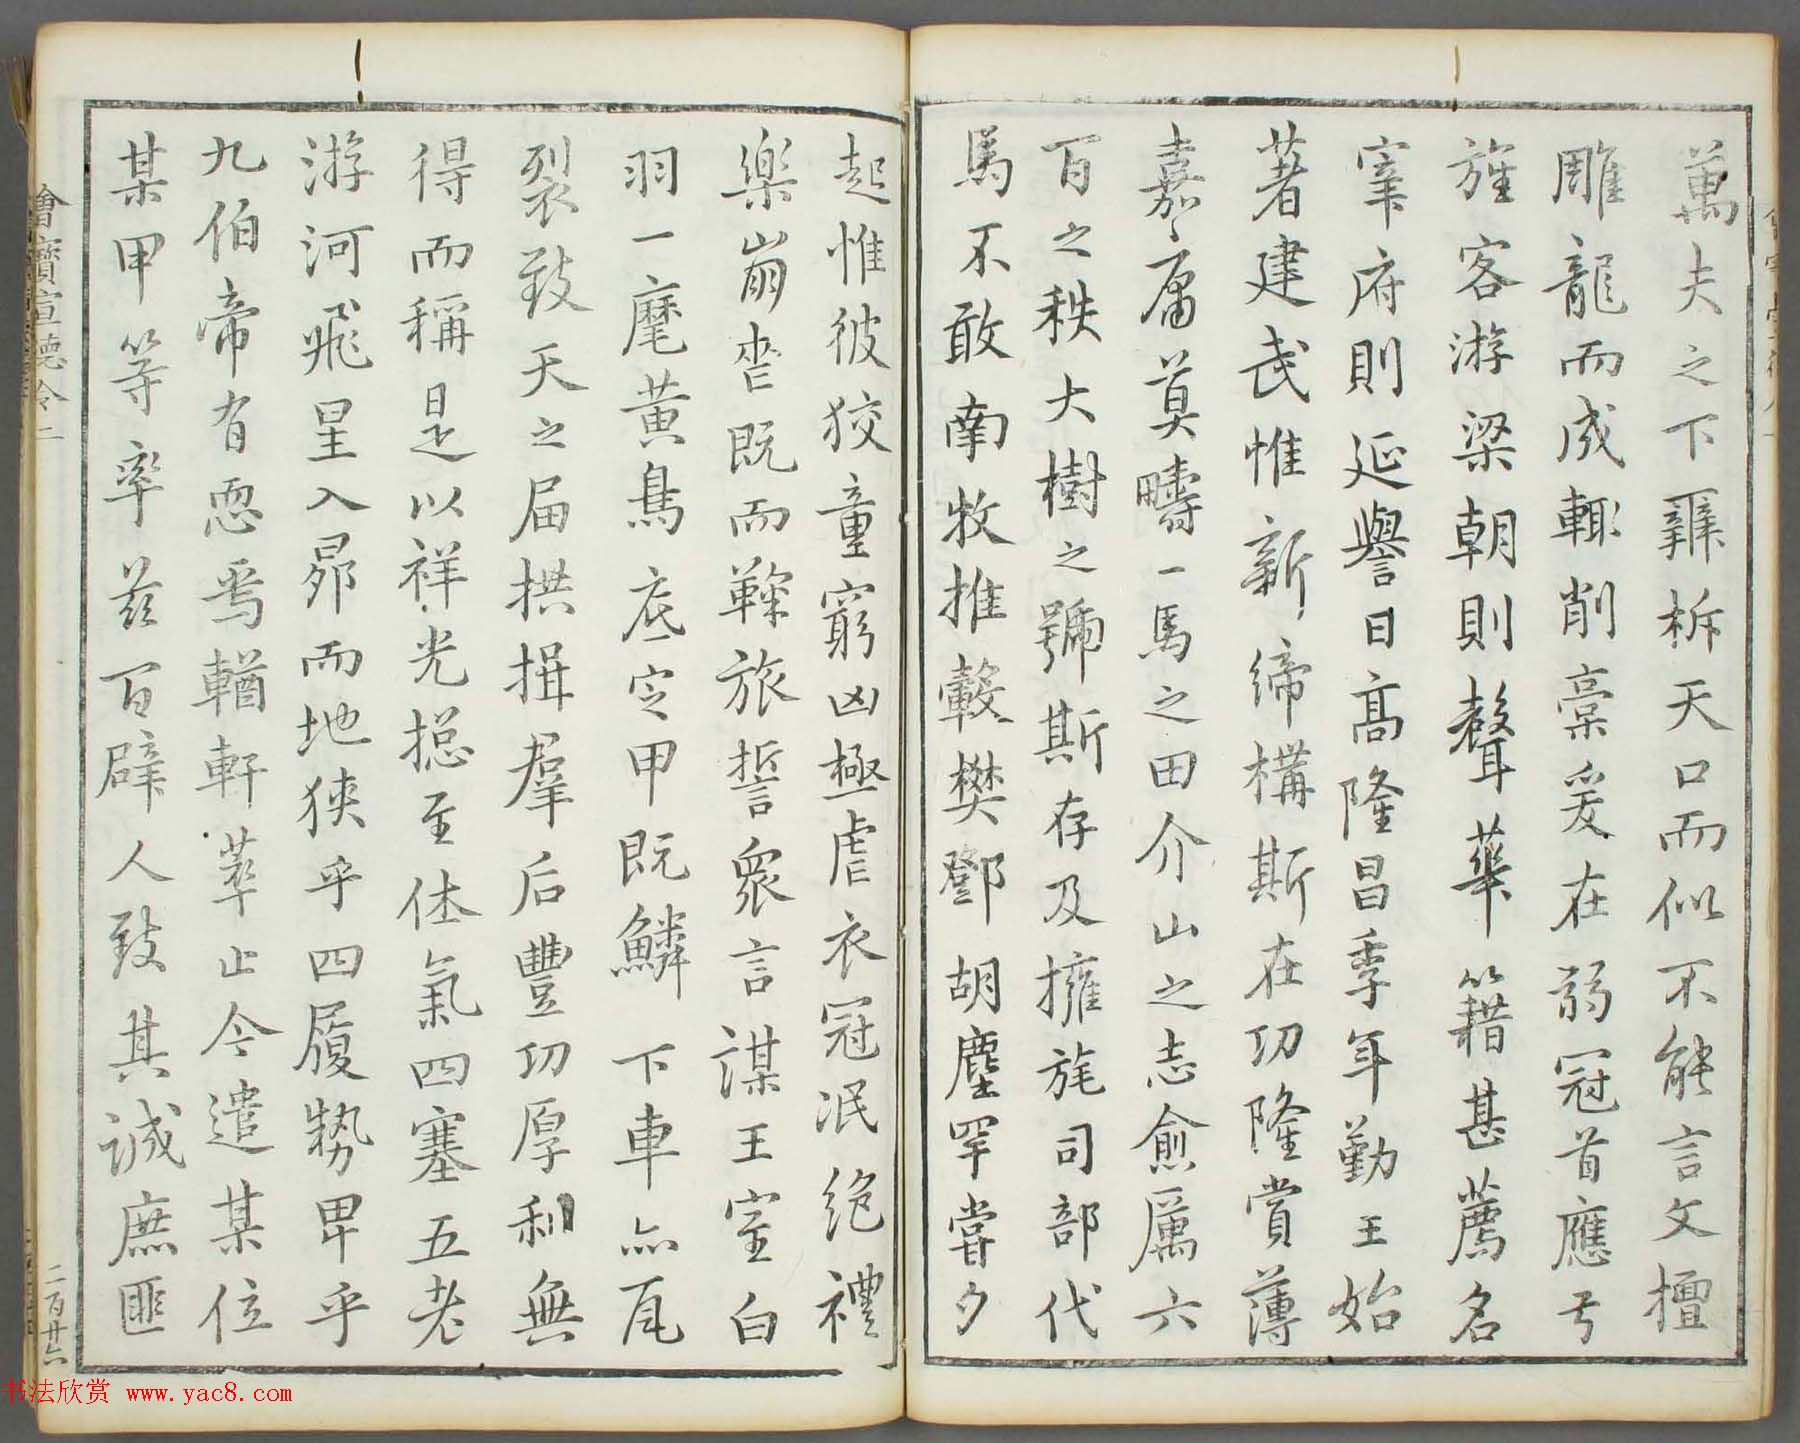 萬夫之下辭柝天口而似不能言文擅
雕龍而成輒削稾爰在弱冠首應弓
旌客游梁朝則聲華籍甚薦名
宰府則延譽日高隆昌季年勤王始
著建武惟新締構斯在功隆賞薄
嘉庸莫疇一馬之田介山之志愈厲六
百之秩大樹之號斯存及擁旄司部代
馬不敢南牧推轂樊鄧胡塵罕嘗夕
起惟彼狡童窮凶極虐衣冠泯絶禮
樂崩喪既而鞠旅誓衆言謀王室白
羽一麾黃鳥底定甲既鱗下車亦瓦
裂致天之届拱揖羣后豐功厚利無
得而稱是以祥光揔至休氣四塞五老
游河飛星入昴而地狹乎四履勢卑乎
九伯帝有恧焉輶軒萃止今遣某位
某甲等率兹百辟人致其誠庶匪
會寶宣德令二
二百廿六
书法欣赏 www.yac8.com